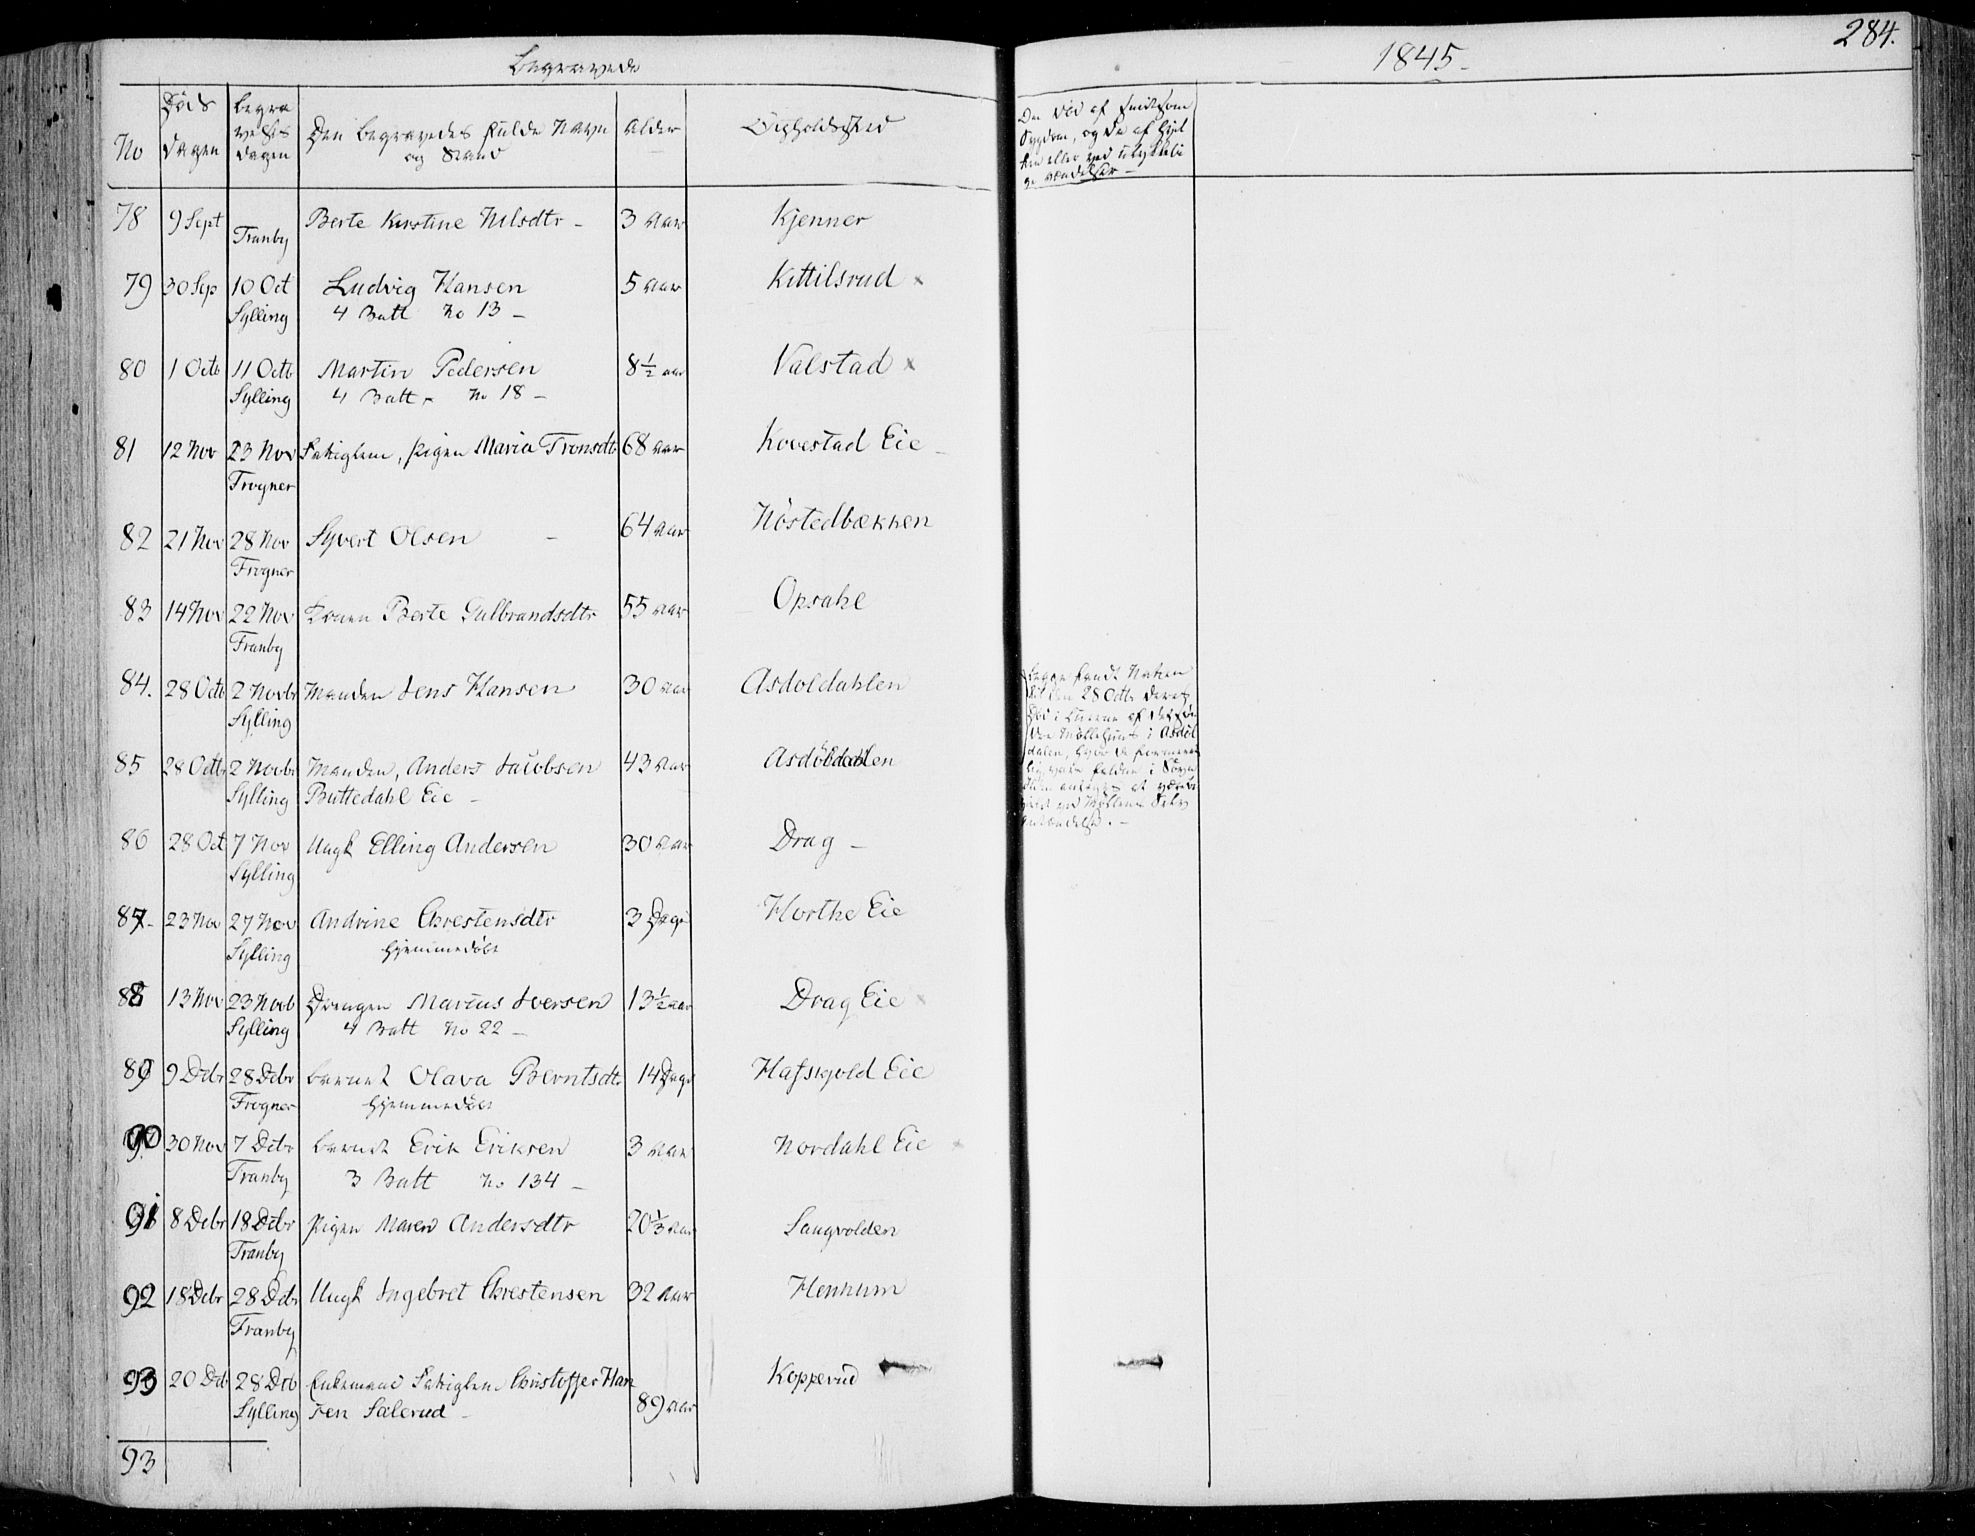 Begravede
1845.
284.
No
Døds
dagen
Begra
velses
dagen
Den Begravedes fulde Navn
og Stand
Alder
Opholdssted
Om død af smitsom
Sygdom, og da af hvil
ken eller ved ulykkeli
ge Hændelser —
78 9 Sept Berte Kirstine Nilsdtr - 3 Aar Kjenner
Tranby
79 30 Sep 10 Oct Ludvig Hansen 5 Aar Kittilsrud x
Sylling 4 Batt No 13 -
80 1 Octb 11 Octb Martin Pedersen 8 1/2 aar Valstad x
Sylling 4 Batt No 18 -
81 12 Nov 23 Nov Fattiglem, Pigen Maria Tronsdtr 68 aar Kovestad Eie
Frogner
82 21 Nov 28 Nov Syvert Olsen - 64 Aar Nøstedbækken
Frogner
83 14 Nov 22 Nov Konen Berte Gulbrandsdtr 55 Aar Opsahl
Tranby
84. 28 Octb 2 Novbr Manden Jens Hansen 30 Aar Asdoldahlen
Sylling
85 28 Octbr 2 Novbr Manden, Anders Jacobsen 43 Aar Asdøldahlen
Sylling Buttedahl Eie -
Begge fandt Natten
til den 28 Octb deres
Død i Luerne af det
Møllehuus i Asdøl
dalen, hvor de
vare faldne i Søvn
antages at være
ved Møllens
antændelse. -
86 28 Oct 7 Nov Ungk Elling Andersen 30 Aar Drag -
Sylling
87. 23 Nov 27 Nov Andrine Chrestensdtr 3 Dage Horthe Eie
Sylling Hjemmedøbt
88 13 Nov 23 Novb Drengen Marius Iversen 13 1/2 aar Drag Eie x
Sylling 4 Batt No 22 -
89 9 Debr 28 Debr Barnet Olava Berntsdtr 14 Dage Hafskjold Eie
Frogner Hjemmedøbt
90 30 Nov 7 Debr Barnet Erik Eriksen 3 Aar Nordahl Eie x
Tranby 3 Batt No 134 -
91 8 Debr 18 Debr Pigen Maren Andersdtr 20 1/3 Aar Langvolden
Tranby
92 18 Debr 28 Debr Ungk Ingebret Chrestensen 32 Aar Hennum
Tranby
93 20 Deb 28 Deb Enkemand Fattiglem Christoffer Han Kopperud
Sylling sen Sælerud - 89 aar
93